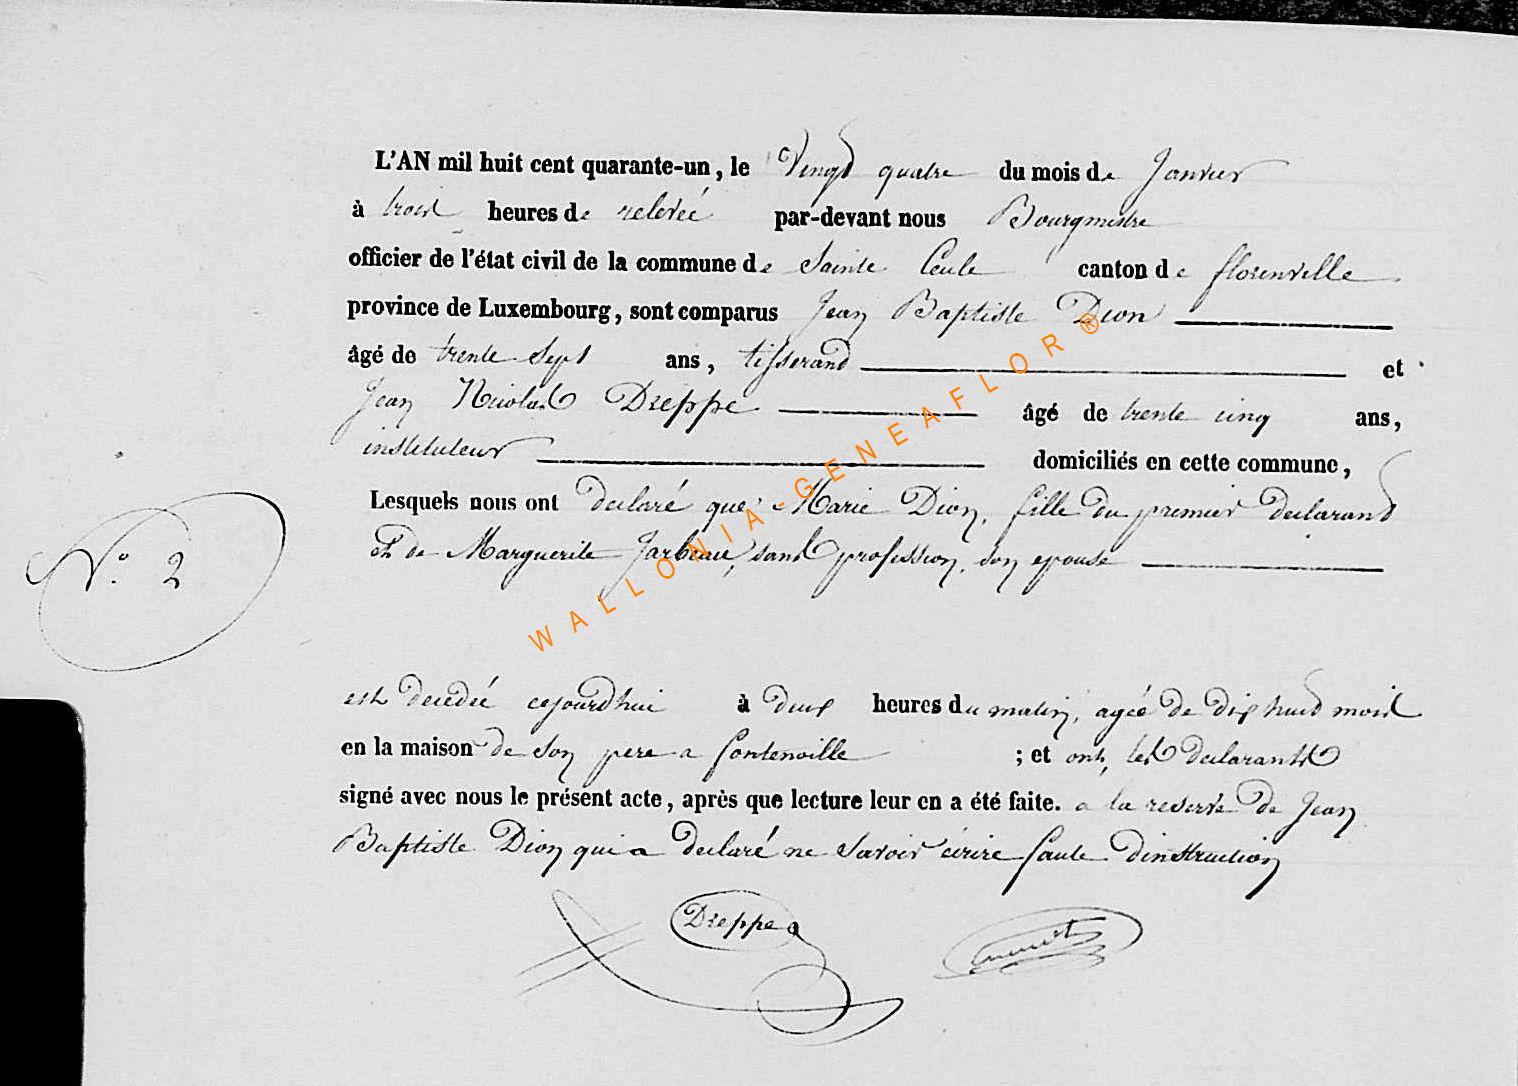 L'AN mil huit cent quarante-un, le Vingt quatre du mois de Janvier
à trois heures de relevée par-devant nous Bourgmestre
officier de l'état civil de la commune de Sainte Cecile canton de florenville
province de Luxembourg, sont comparus Jean Baptiste Dion
âgé de trente Sept ans, tisserand et
Jean Nicolas Dreppe âgé de trente cinq ans,
instituteur domiciliés en cette commune,
Lesquels nous ont declaré que Marie Dion, fille du premier declarant
N° 2
et de Marguerite Jarbeau, sans profession, son epouse
est decedée cejourdhui à deux heures du matin, agée de dix huit mois
en la maison de son pere a fontenoille ; et ont, les declarants
signé avec nous le présent acte, après que lecture leur en a été faite. a la reserve de Jean
Baptiste Dion qui a declaré ne savoir ecrire faute d'instruction
Dreppe
WALLONIA-GENEAFLOR®